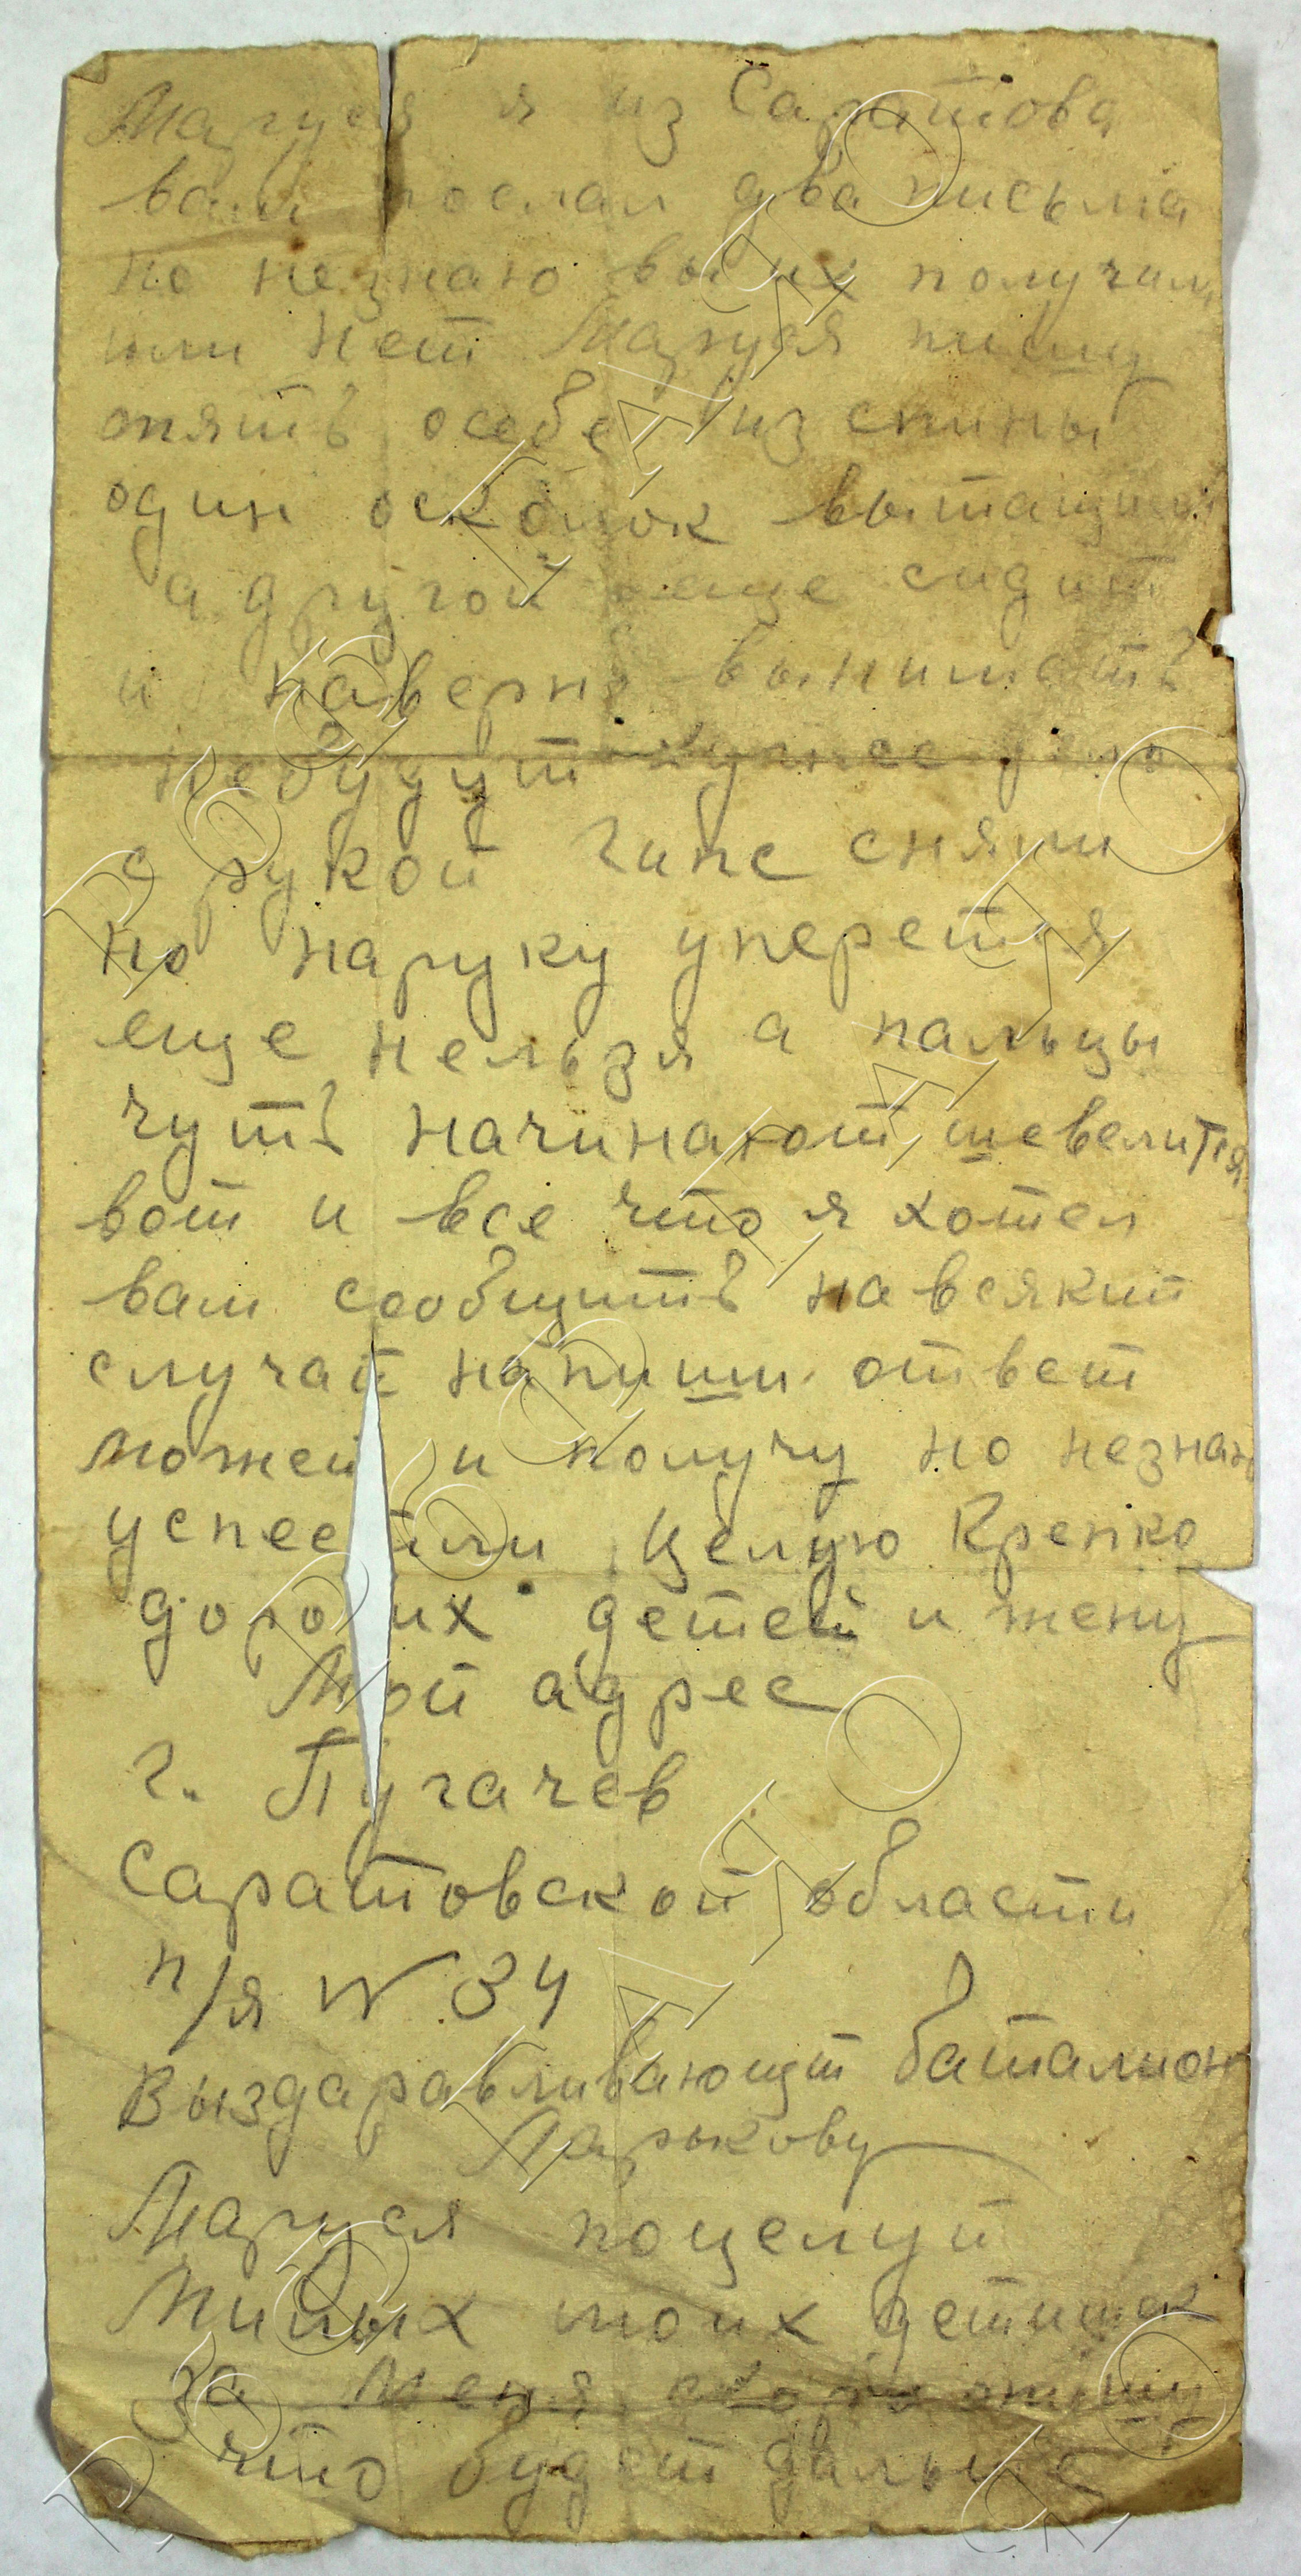 Маруся я из Саратова
вам послал два письма
но незнаю вы их получили
или нет Маруся пишу
опять осебе из спины
один осколок вытащили
а другой еще сидит
и наверно вынимать
небудут хучшее дело
с рукой гипс сняли
но наруку уперется
еще нельзя а пальцы
чуть начинают шевелится
вот и все что я хотел
вам сообщить на всякий
случай напиши ответ
можеи и получу но незнаю
успее или Целую Крепко
дорогих детей и жену
Мой адрес
г. Пугачев
Саратовской области
п/я № 34
Выздаравливающий баталион
Ларькову
Маруся поцелуй
Милых моих детишек
за меня скоро опишу
что будет дальше